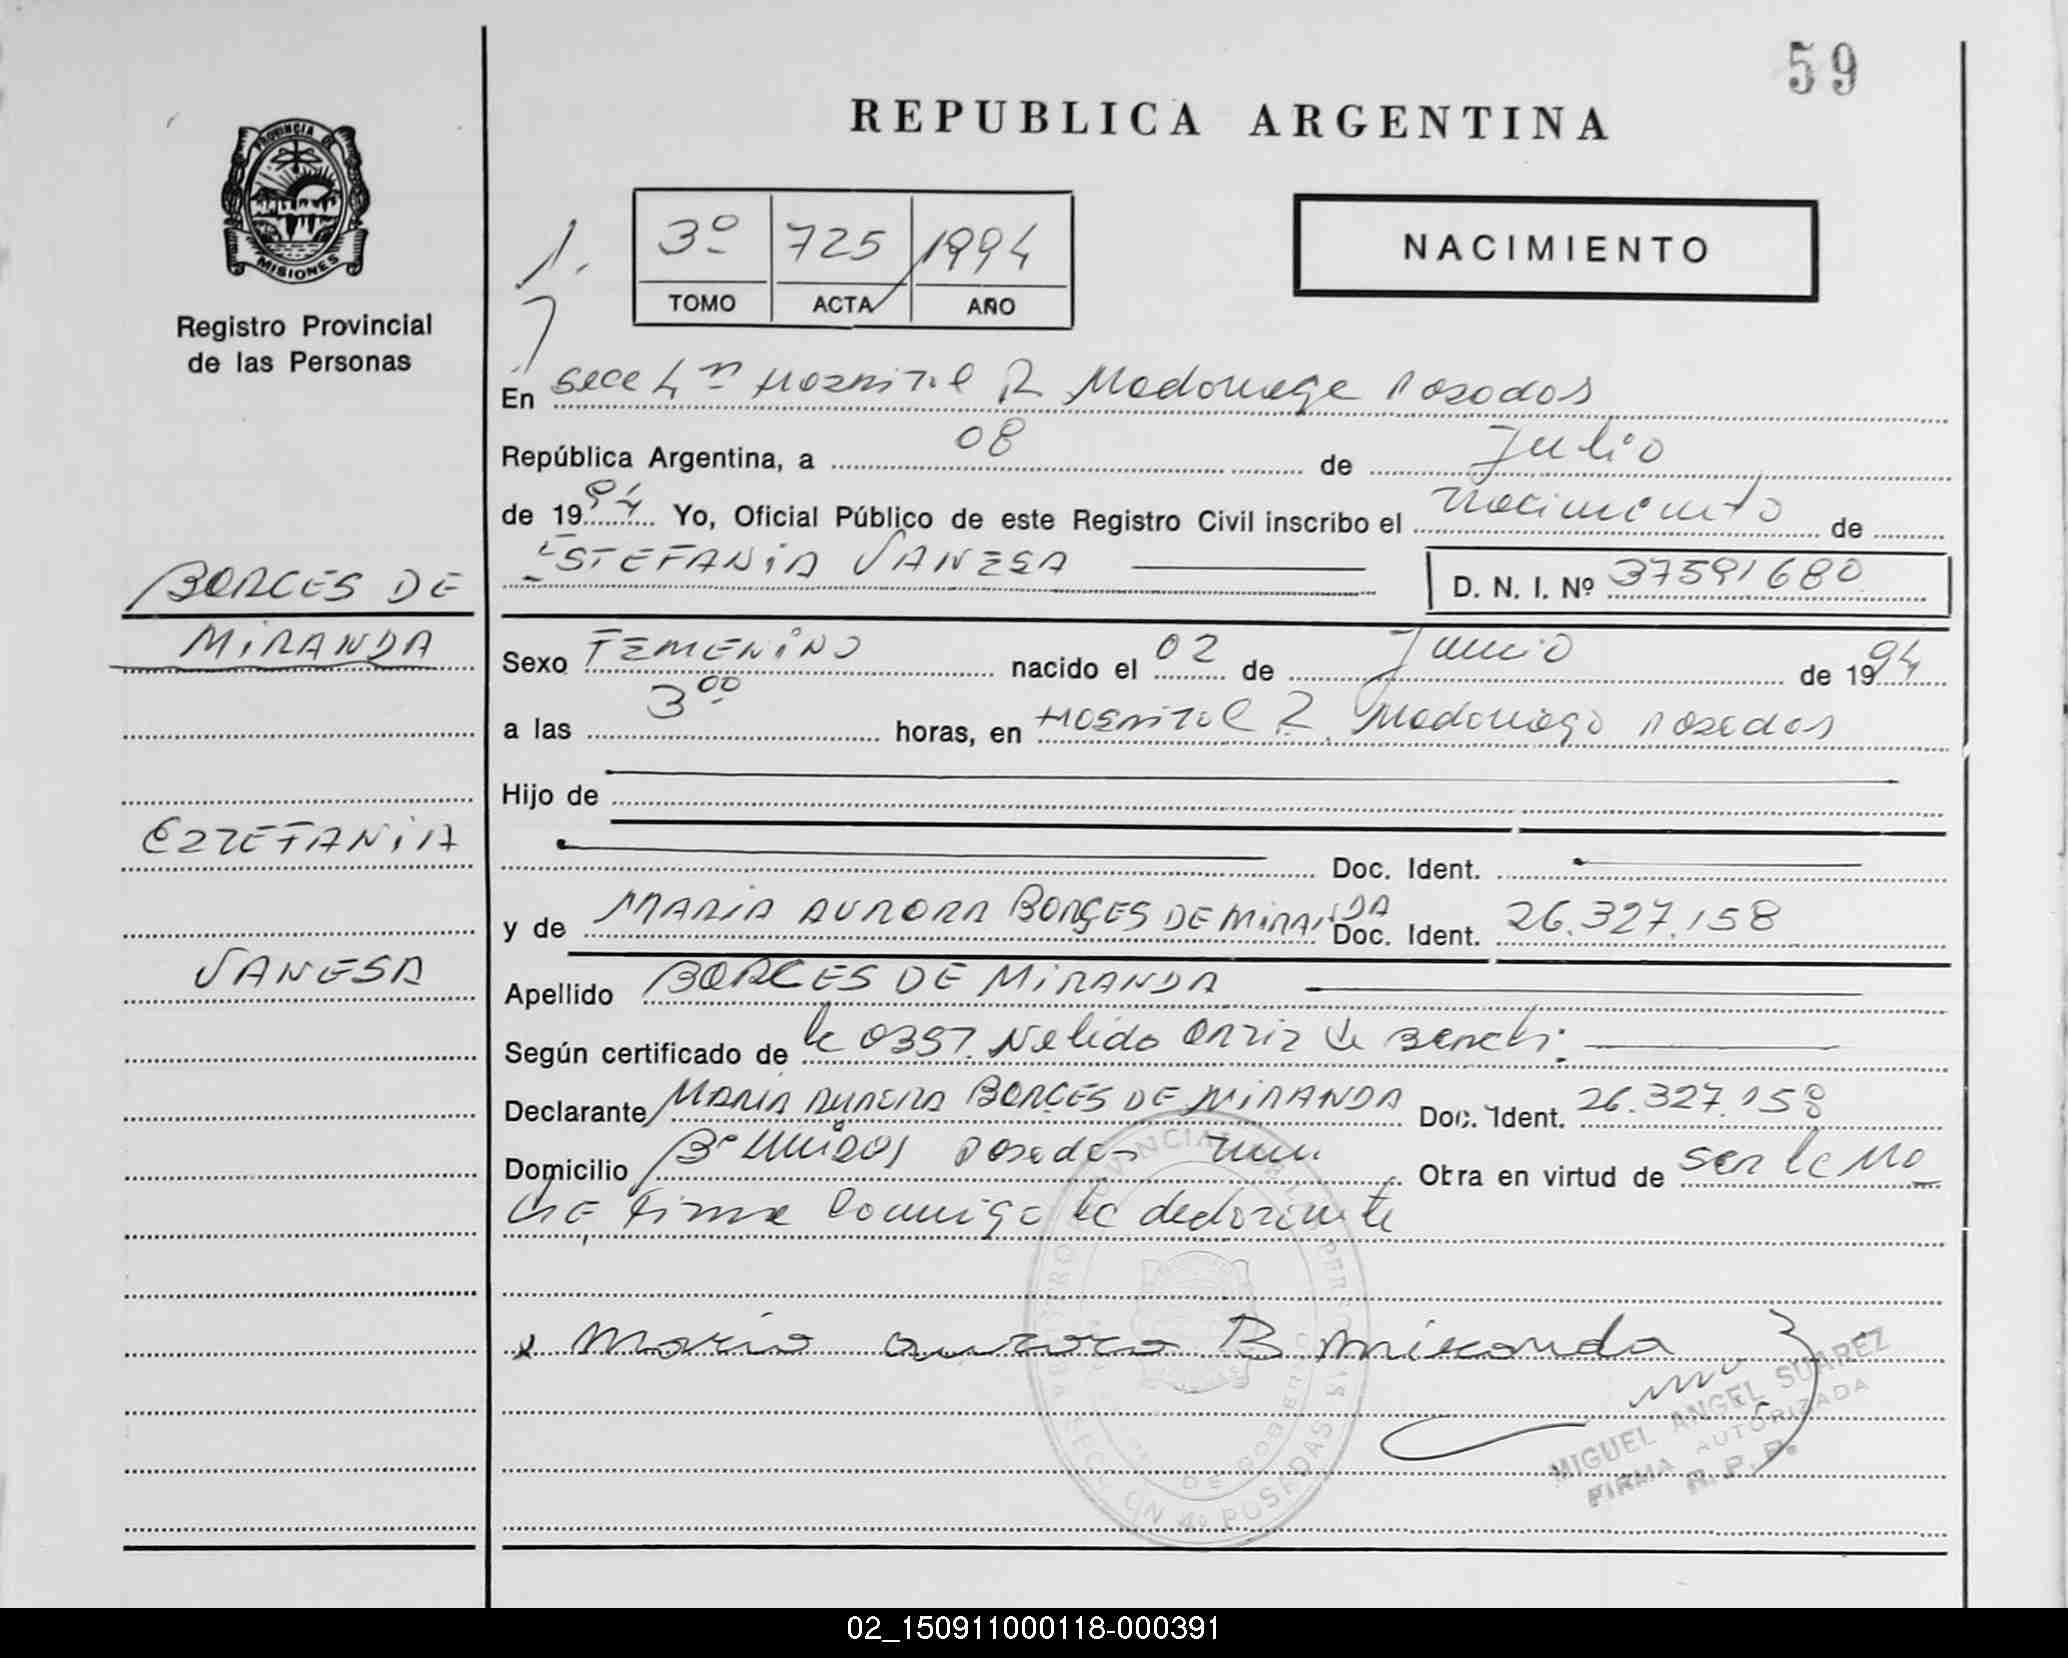 59
REPUBLICA ARGENTINA
PROVINCIA DE
MISIONES
Registro Provincial
de las Personas
3º 725 1994
TOMO ACTA AÑO
NACIMIENTO
En Secc 4ta Hospital R Madariaga Posadas
República Argentina, a 08 de Julio
de 1994 Yo, Oficial Público de este Registro Civil inscribo el nacimiento de
ESTEFANIA VANESA D. N. I. Nº 37591680
BORGES DE
MIRANDA
Sexo FEMENINO nacido el 02 de Junio de 1994
a las 3 00 horas, en Hospital R. Madariaga Posadas
Hijo de
ESTEFANIA
Doc. Ident.
y de MARIA AURORA BORGES DE MIRANDA Doc. Ident. 26.327.158
VANESA
Apellido BORGES DE MIRANDA
Según certificado de la 0397. Nelida Ortiz de
Declarante MARIA AURORA BORGES DE MIRANDA Doc. Ident. 26.327.158
Domicilio Bº Posadas Otra en virtud de ser la ma
dre firma conmigo la declarante
Maria aurora B miranda
REGISTRO PROVINCIAL DE LAS PERSONAS
SECCION 4º POSADAS
MIGUEL ANGEL SUAREZ
FIRMA AUTORIZADA
R. P. P.
02_150911000118-000391